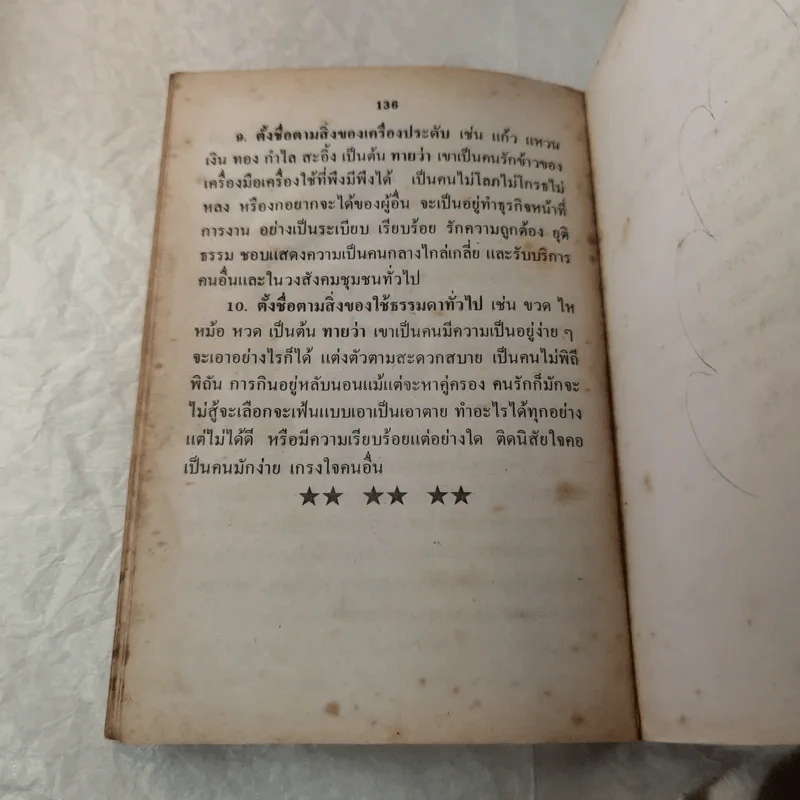 136
๑. ตั้งชื่อตามสิ่งของเครื่องประดับ เช่น แก้ว แหวน
เงิน ทอง กำไล สะอิ้ง เป็นต้น ทายว่า เขาเป็นคนรักข้าวของ
เครื่องมือเครื่องใช้ที่พึงมีพึงได้ เป็นคนไม่โลภไม่โกรธไม่
หลง หรืองกอยากจะได้ของผู้อื่น จะเป็นอยู่ทำธุรกิจหน้าที่
การงาน อย่างเป็นระเบียบ เรียบร้อย รักความถูกต้อง ยุติ
ธรรม ชอบแสดงความเป็นคนกลางไกล่เกลี่ย และรับบริการ
คนอื่นและในวงสังคมชุมชนทั่วไป
10. ตั้งชื่อตามสิ่งของใช้ธรรมดาทั่วไป เช่น ขวด ไห
หม้อ หวด เป็นต้น ทายว่า เขาเป็นคนมีความเป็นอยู่ง่าย ๆ
จะเอาอย่างไรก็ได้ แต่งตัวตามสะดวกสบาย เป็นคนไม่พิถี
พิถัน การกินอยู่หลับนอนแม้แต่จะหาคู่ครอง คนรักก็มักจะ
ไม่สู้จะเลือกจะเฟ้นแบบเอาเป็นเอาตาย ทำอะไรได้ทุกอย่าง
แต่ไม่ได้ดี หรือมีความเรียบร้อยแต่อย่างใด ติดนิสัยใจคอ
เป็นคนมักง่าย เกรงใจคนอื่น